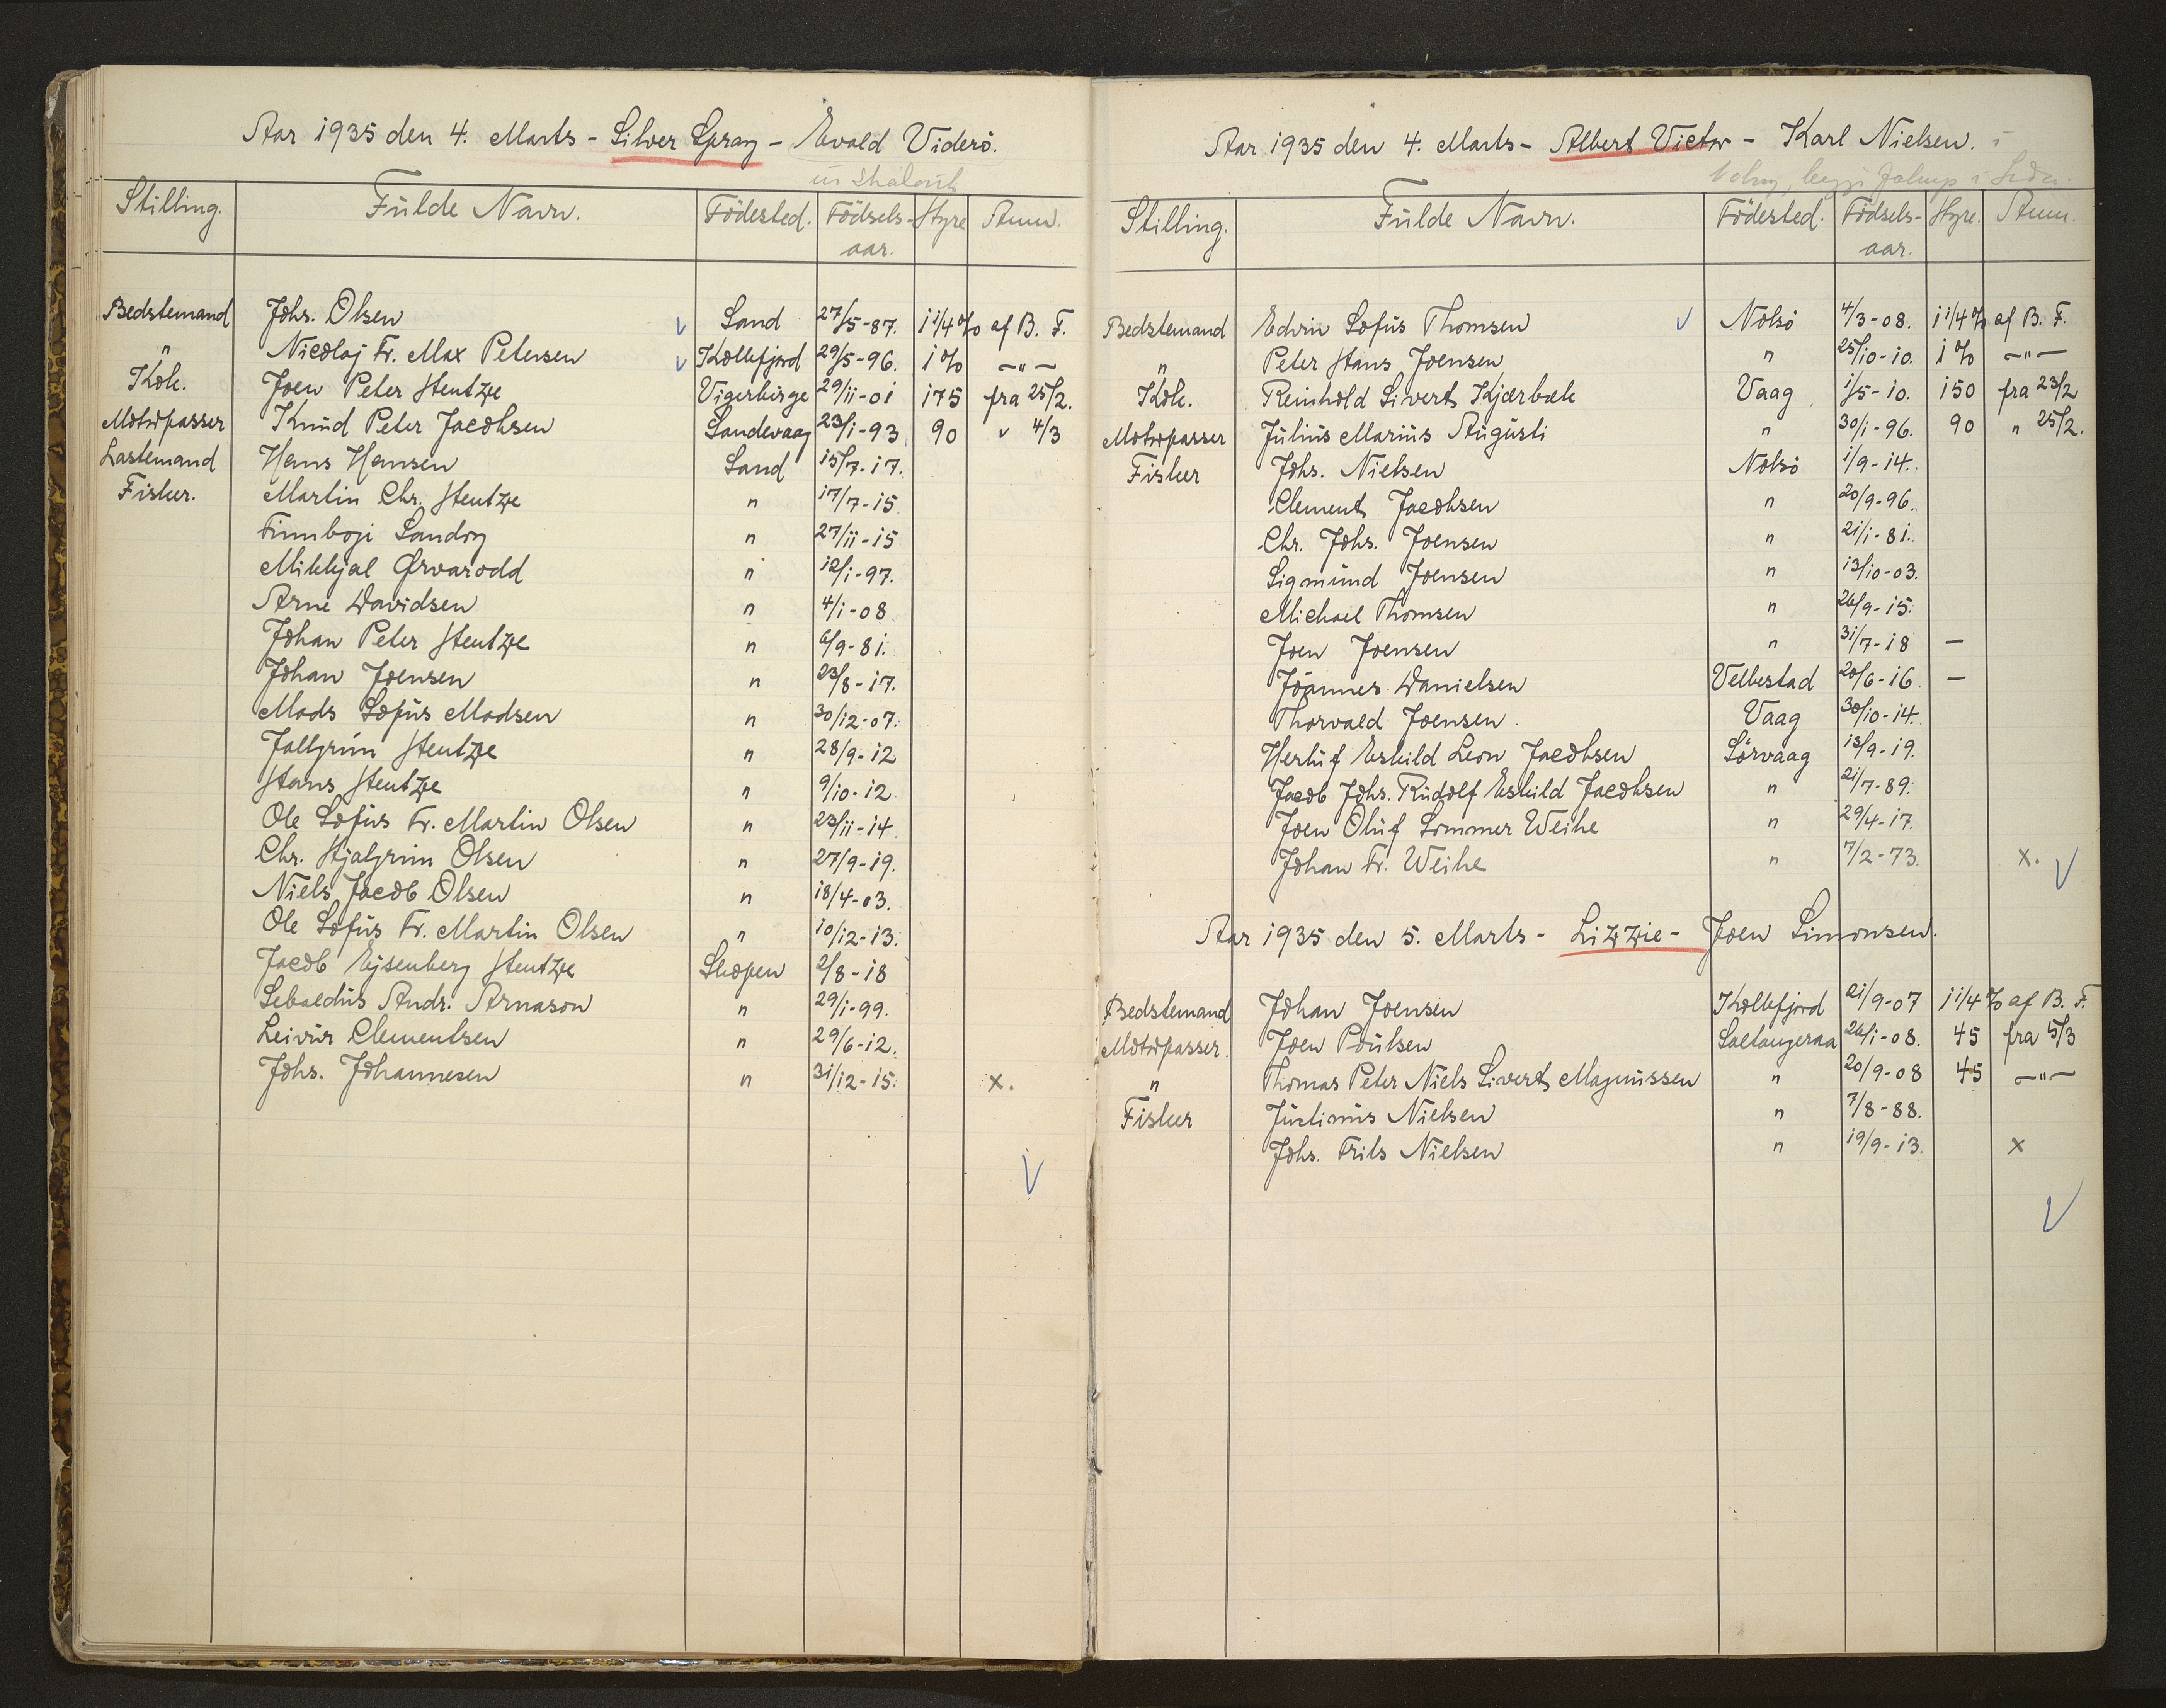 Aar 1935 den 4. Marts - Silver Spray - Evald Viderö.
úr Skálavík
Stilling. Fulde Navn. Födested. Födsels-aar. Hyre Anm.
Bedstemand Johs. Olsen V Sand 27/5-87. 1 1/4 % af B. F.
" Nicolaj Fr. Max Petersen V Kollefjord 29/5-96. 1 % -"-
Kok. Joen Peter Hentze Vigerbirge 29/11-01 175 fra 25/2.
Motorpasser Knud Peter Jacobsen Sandevaag 23/1-93 90 " 4/3
Lastemand Hans Hansen Sand 15/7-17.
Fisker. Martin Chr. Hentze " 17/7-15
Finnbogi Sandoy " 27/11-15
Mikkjal Ørvarodd " 12/1-97.
Arne Davidsen " 4/1-08
Johan Peter Hentze " 6/9-81.
Johan Joensen " 23/8-17.
Mads Sofus Madsen " 30/12-07.
Jallgrim Hentze " 28/9-12
Hans Hentze " 9/10-12
Ole Sofus Fr. Martin Olsen " 23/11-14
Chr. Hjalgrim Olsen " 27/9-19.
Niels Jacob Olsen " 18/4-03.
Ole Sofus Fr. Martin Olsen " 10/12-13.
Jacob Ejsenberg Hentze Skopen 2/8-18
Sebaldus Andr. Arnason " 29/1-99.
Leivur Clementsen " 29/6-12.
Johs. Johannesen " 31/12-15. x.
V
Aar 1935 den 4. Marts - Albert Victor - Karl Nielsen. í
Nolsoy, beggi Jákup í
Stilling. Fulde Navn. Födested. Födsels-aar. Hyre. Anm.
Bedstemand Edvin Sofus Thomsen V Nolsö 4/3-08. 1 1/4 % af B. F.
" Peter Hans Joensen " 25/10-10. 1 % -"-
Kok. Reinhold Sivert Kjærbæk Vaag 1/5-10. 150 fra 23/2
Motorpasser Julius Marius Augusti " 30/1-96. 90 " 25/2.
Fisker Johs. Nielsen Nolsö 1/9-14.
Clement Jacobsen " 20/9-96.
Chr. Johs. Joensen " 21/1-81.
Sigmund Joensen " 13/10-03.
Michael Thomsen " 26/9-15.
Joen Joensen " 31/7-18 -
Jóannes Danielsen Velbestad 20/6-16. -
Thorvald Joensen. Vaag 30/10-14.
Herluf Eskild Leon Jacobsen Sörvaag 13/9-19.
Jacob Johs. Rudolf Eskild Jacobsen " 21/7-89.
Joen Oluf Sommer Weihe " 29/4-17.
Johan Fr. Weihe " 7/2-73. x. V
Aar 1935 den 5. Marts - Lizzie - Joen Simonsen.
Bedstemand Johan Joensen Kollefjord 21/9-07 1 1/4 % af B. F.
Motorpasser. Joen Poulsen Saltangeraa 26/1-08. 45 fra 5/3
" Thomas Peter Niels Sivert Magnussen " 20/9-08 45 -"-
Fisker Justinus Nielsen " 7/8-88.
Johs. Frits Nielsen " 19/9-13. x
V